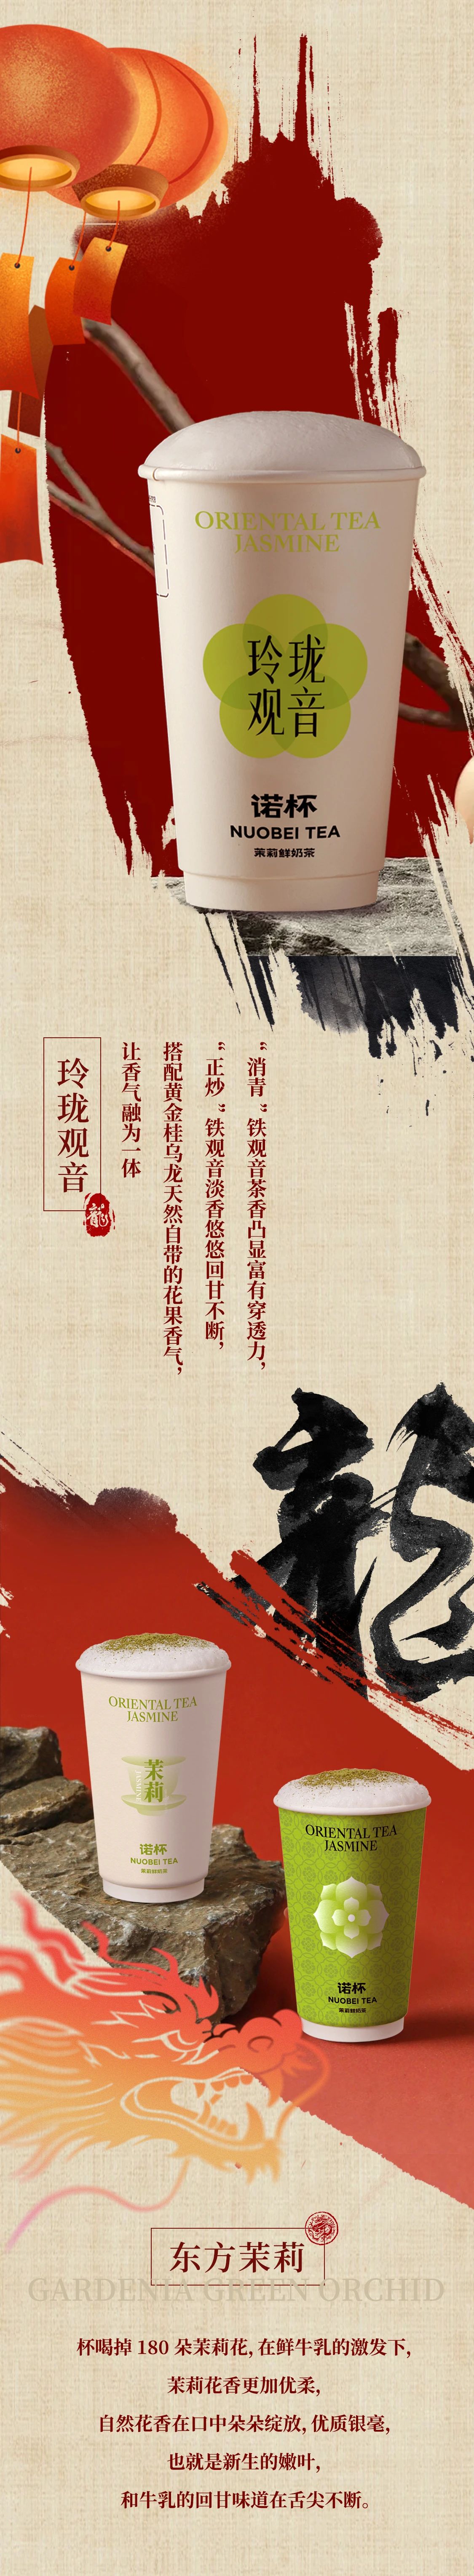 ORIENTAL TEA
JASMINE
玲珑
观音
诺杯
NUOBEI TEA
茉莉鲜奶茶
“消青”铁观音茶香凸显富有穿透力，
“正炒”铁观音淡香悠悠回甘不断，
搭配黄金桂乌龙天然自带的花果香气，
让香气融为一体
玲珑观音
龍
龍
ORIENTAL TEA
JASMINE
茉莉
诺杯
NUOBEI TEA
茉莉鲜奶茶
ORIENTAL TEA
JASMINE
诺杯
NUOBEI TEA
茉莉鲜奶茶
东方茉莉
GARDENIA GREEN ORCHID
杯喝掉 180 朵茉莉花, 在鲜牛乳的激发下,
茉莉花香更加优柔,
自然花香在口中朵朵绽放, 优质银毫,
也就是新生的嫩叶,
和牛乳的回甘味道在舌尖不断。